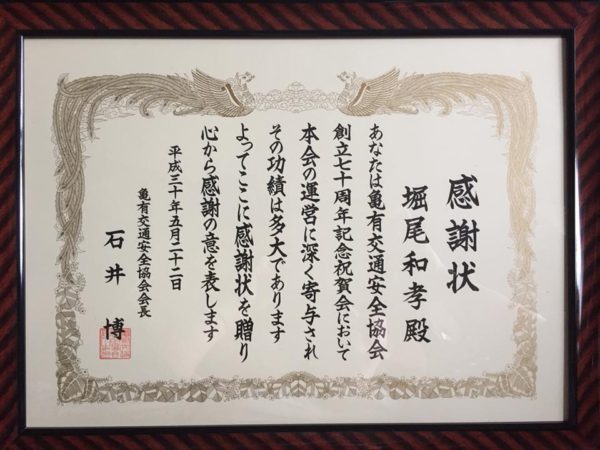 感謝状
堀尾和孝殿
あなたは亀有交通安全協会
創立七十周年記念祝賀会において
本会の運営に深く寄与され
その功績は多大であります
よってここに感謝状を贈り
心から感謝の意を表します
平成三十年五月二十二日
亀有交通安全協会会長
石井博